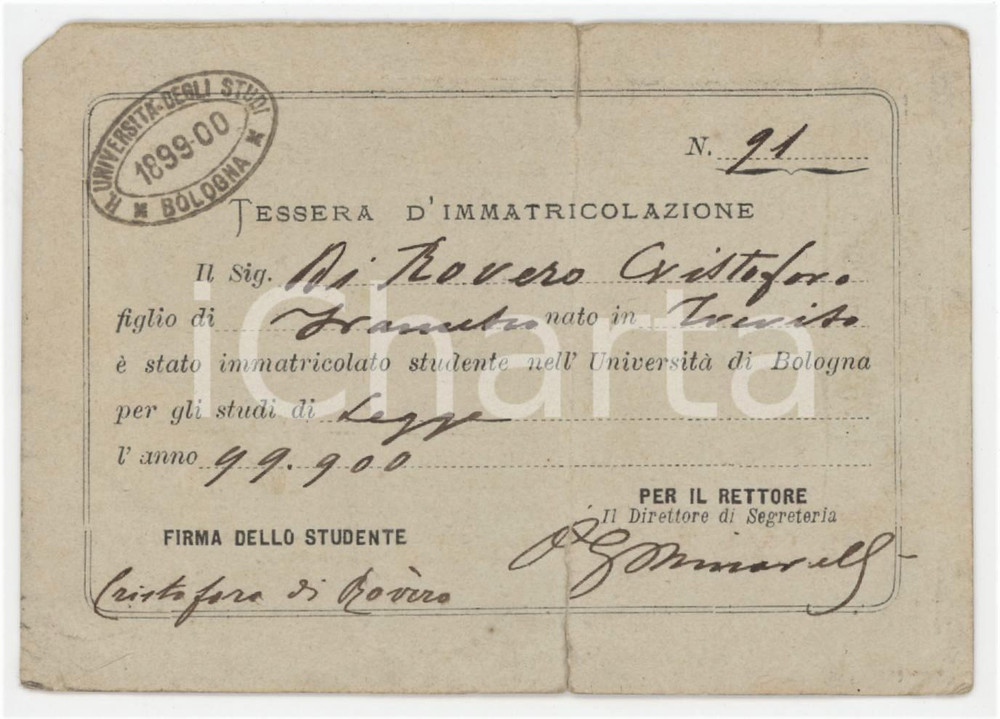 R. UNIVERSITÀ DEGLI STUDI
1899-00
BOLOGNA
N. 91
TESSERA D'IMMATRICOLAZIONE
Il Sig. Di Rovero Cristoforo
figlio di nato in Treviso
è stato immatricolato studente nell' Università di Bologna
per gli studi di Legge
l' anno 99.900
PER IL RETTORE
Il Direttore di Segreteria
FIRMA DELLO STUDENTE
Cristoforo di Rovero
iCharta